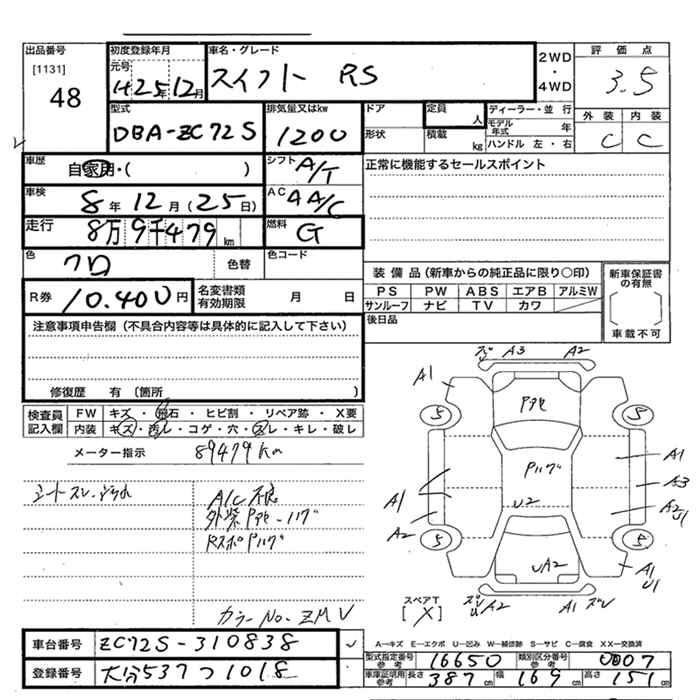 出品番号 初度登録年月 車名・グレード 評価点
[1131] 元号 スイフト RS 2WD・4WD 3.5
48 H25年12月
型式 排気量又はkw ドア 定員 人 ディーラー・並行 外装 内装
DBA-ZC72S 1200 形状 積載 kg モデル年式 年 C C
ハンドル 左・右
車歴 自家用・( ) シフト A/T 正常に機能するセールスポイント
車検 8年12月(25日) AC AA/C
走行 8万9千479km 燃料 G
色 クロ 色替 色コード
装備品(新車からの純正品に限り○印) 新車保証書の有無
PS PW ABS エアB アルミW
R券 10,400円 名変書類有効期限 月 日 サンルーフ ナビ TV カワ
後日品 車載不可
注意事項申告欄(不具合内容等は具体的に記入して下さい)
修復歴 有(箇所 )
検査員記入欄 FW キズ・飛石・ヒビ割・リペア跡・X要
内装 キズ・汚レ・コゲ・穴・スレ・キレ・破レ
メーター指示 89479Km
A/C不良
カラーNo. ZMV
A3 A2
A1
5 5
A1
A3
A1 U2 A2
A2 U1
5 5
UA2 A1
U1
A2 A1
スペアT
[X]
車台番号 ZC72S-310838
登録番号 大分537つ1018
A―キズ E―エクボ U―凹み W―補修跡 S―サビ C―腐食 XX―交換済
型式指定番号 参考 16650 類別区分番号 参考 0007
車庫証明用 参考 長さ 387cm 幅 169cm 高さ 151cm